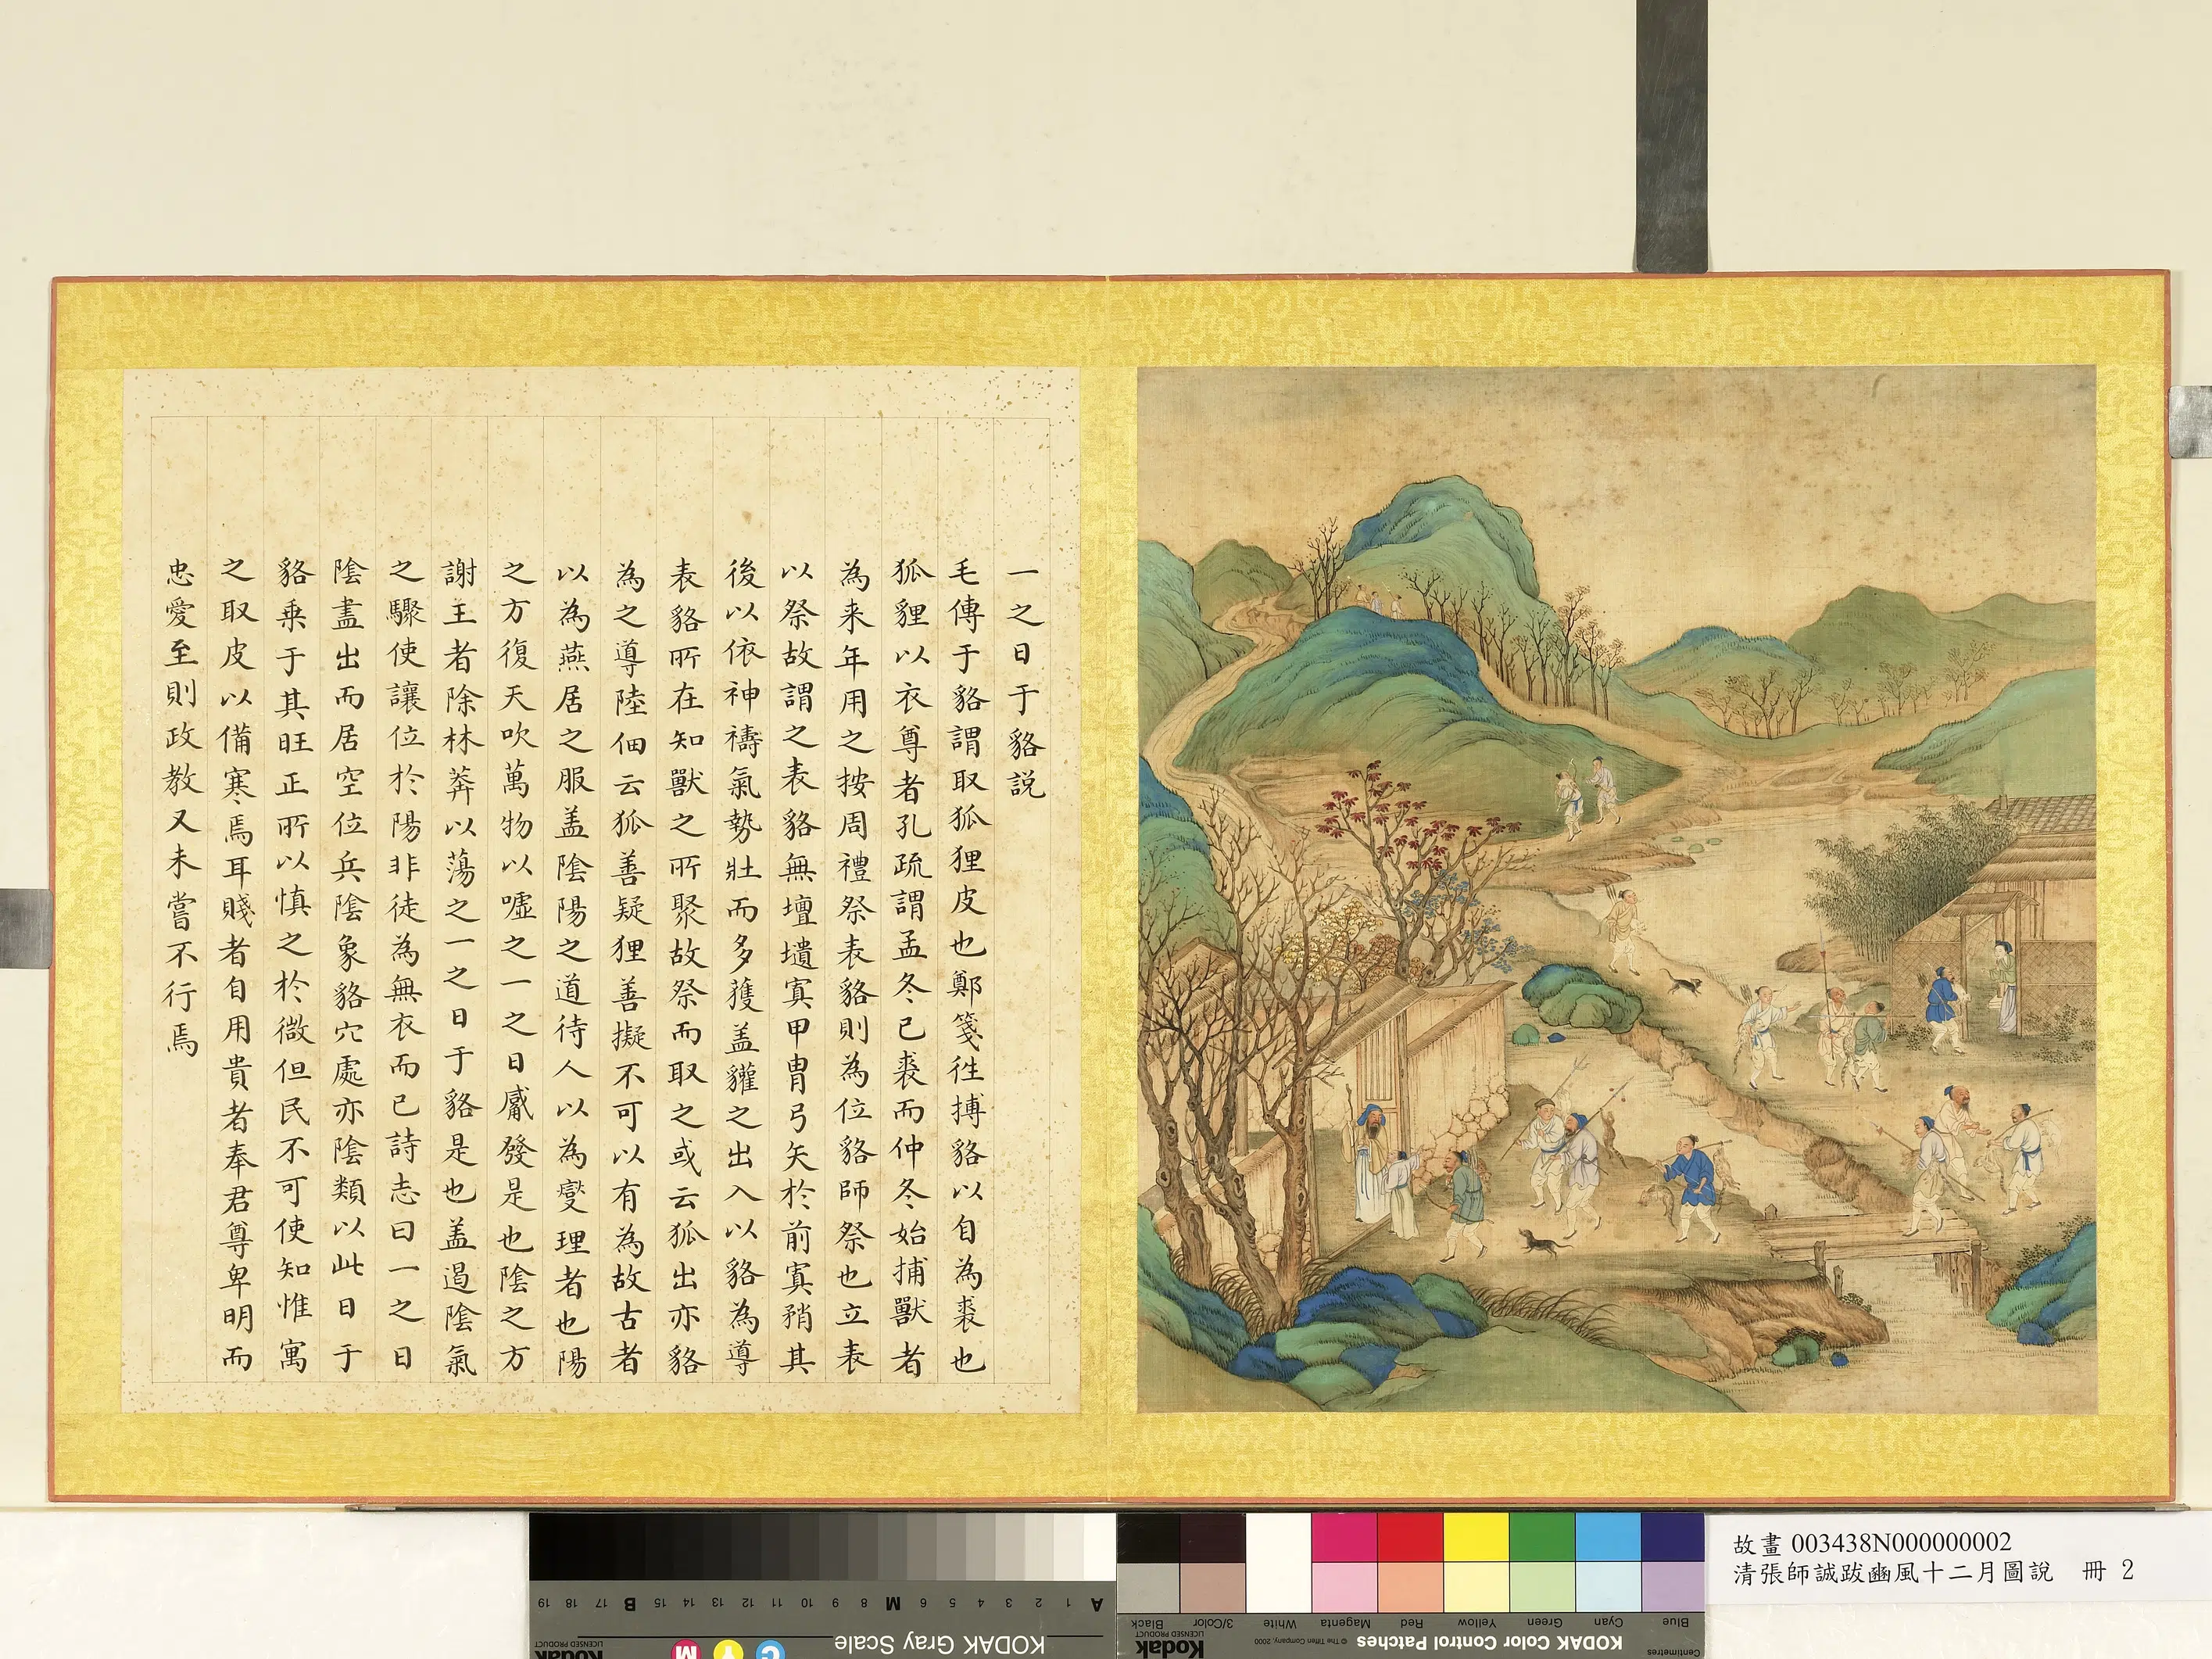 一之日于貉説
毛傳于貉謂取狐狸皮也鄭箋往搏貉以自為裘也
狐貍以衣尊者孔疏謂孟冬已裘而仲冬始捕獸者
為来年用之按周禮祭表貉則為位貉師祭也立表
以祭故謂之表貉無壇壝寘甲冑弓矢於前寘矟其
後以依神禱氣勢壯而多獲盖貛之出入以貉為導
表貉所在知獸之所聚故祭而取之或云狐出亦貉
為之導陸佃云狐善疑狸善擬不可以有為故古者
以為燕居之服盖陰陽之道待人以為燮理者也陽
之方復天吹萬物以噓之一之日觱發是也陰之方
謝王者除林莽以蕩之一之日于貉是也盖遏陰氣
之驟使讓位於陽非徒為無衣而已詩志曰一之日
陰盡出而居空位兵陰象貉穴處亦陰類以此日于
貉乗于其旺正所以慎之於微但民不可使知惟寓
之取皮以備寒焉耳賤者自用貴者奉君尊卑明而
忠愛至則政教又未嘗不行焉
故畫 003438N000000002
清張師誠跋豳風十二月圖說 冊 2
KODAK Gray Scale
C Y M
Kodak
LICENSED PRODUCT
A 1 2 3 4 5 6 M 8 9 10 11 12 13 14 15 B 17 18 19
KODAK Color Control Patches © The Tiffen Company, 2000
Kodak
LICENSED PRODUCT
Centimetres
Blue Cyan Green Yellow Red Magenta White 3/Color Black